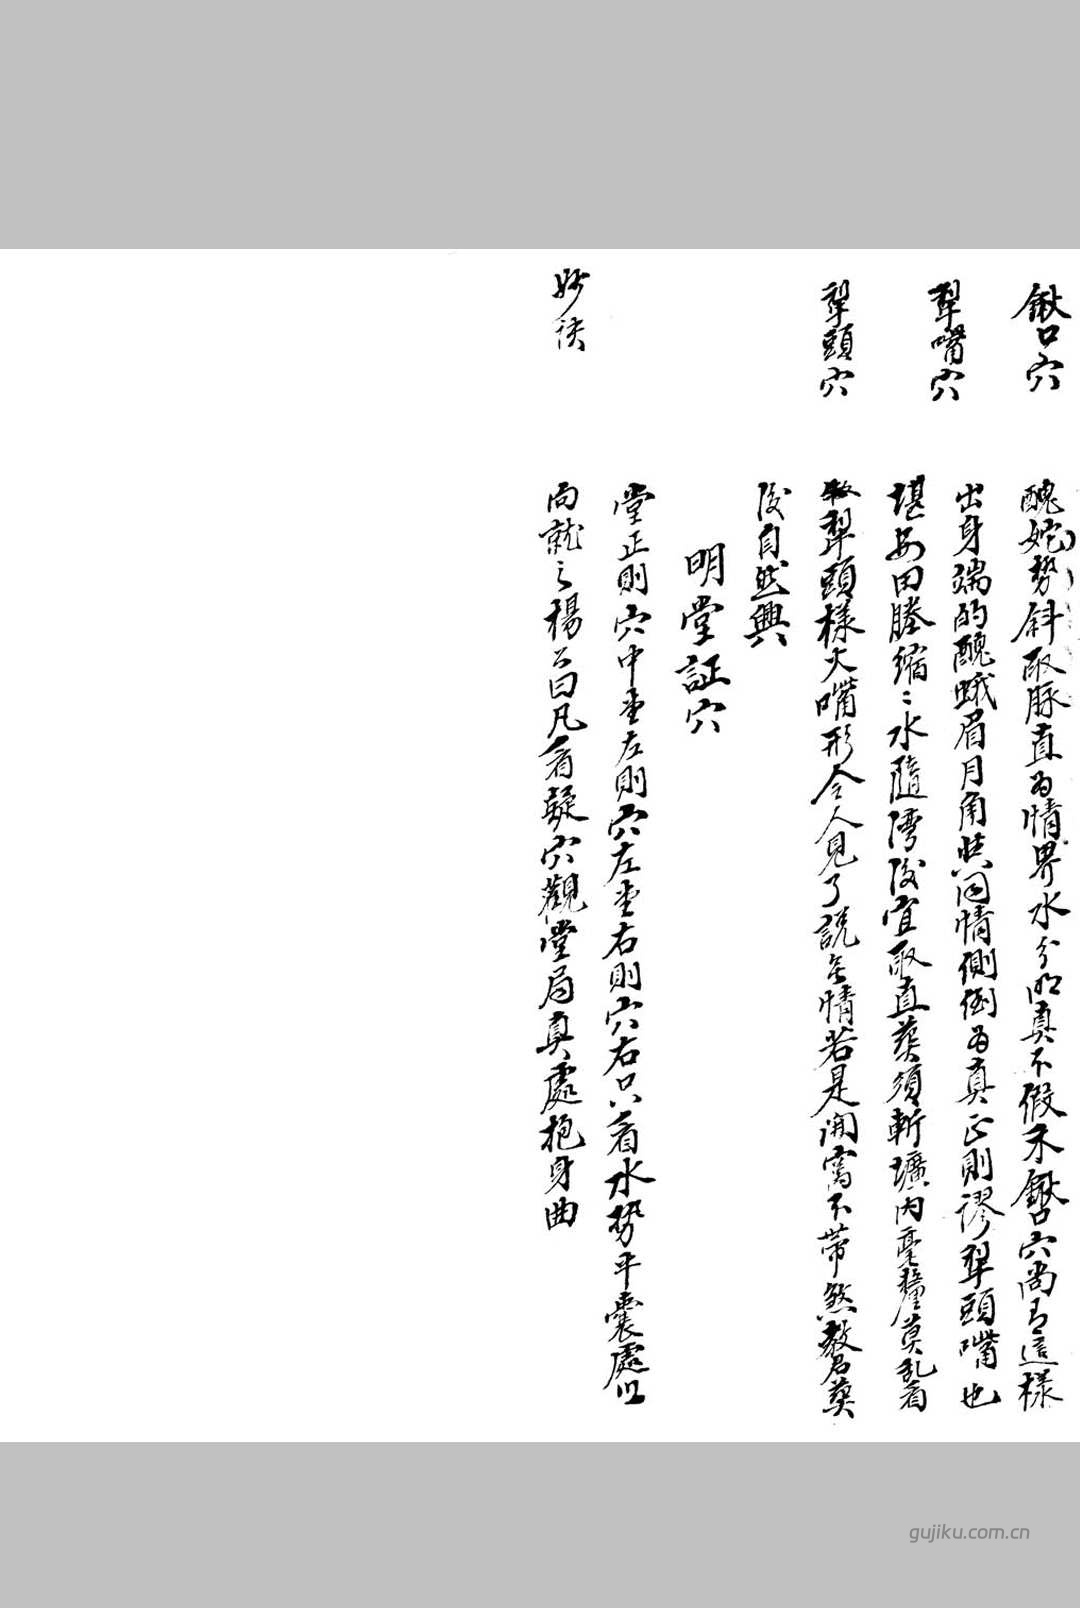 鍬口穴
醜妣勢斜取脉直為情界水分明真不假禾鍬口穴尚有這樣
犂嘴穴
出身端的醜蛾眉月角共同情側倒為真正則謬犂頭嘴也
堪安田塍縮縮水隨灣後宜取直葬須斬壙内毫釐莫乱看
犂頭穴
犂頭樣大嘴形令人見了説無情若是開窩不帶煞教君葬
後自然興
明堂証穴
堂正則穴中堂左則穴左堂右則穴右只看水勢平囊處以
妙訣
向就之楊公曰凡看疑穴觀堂局真處抱身曲
gujiku.com.cn